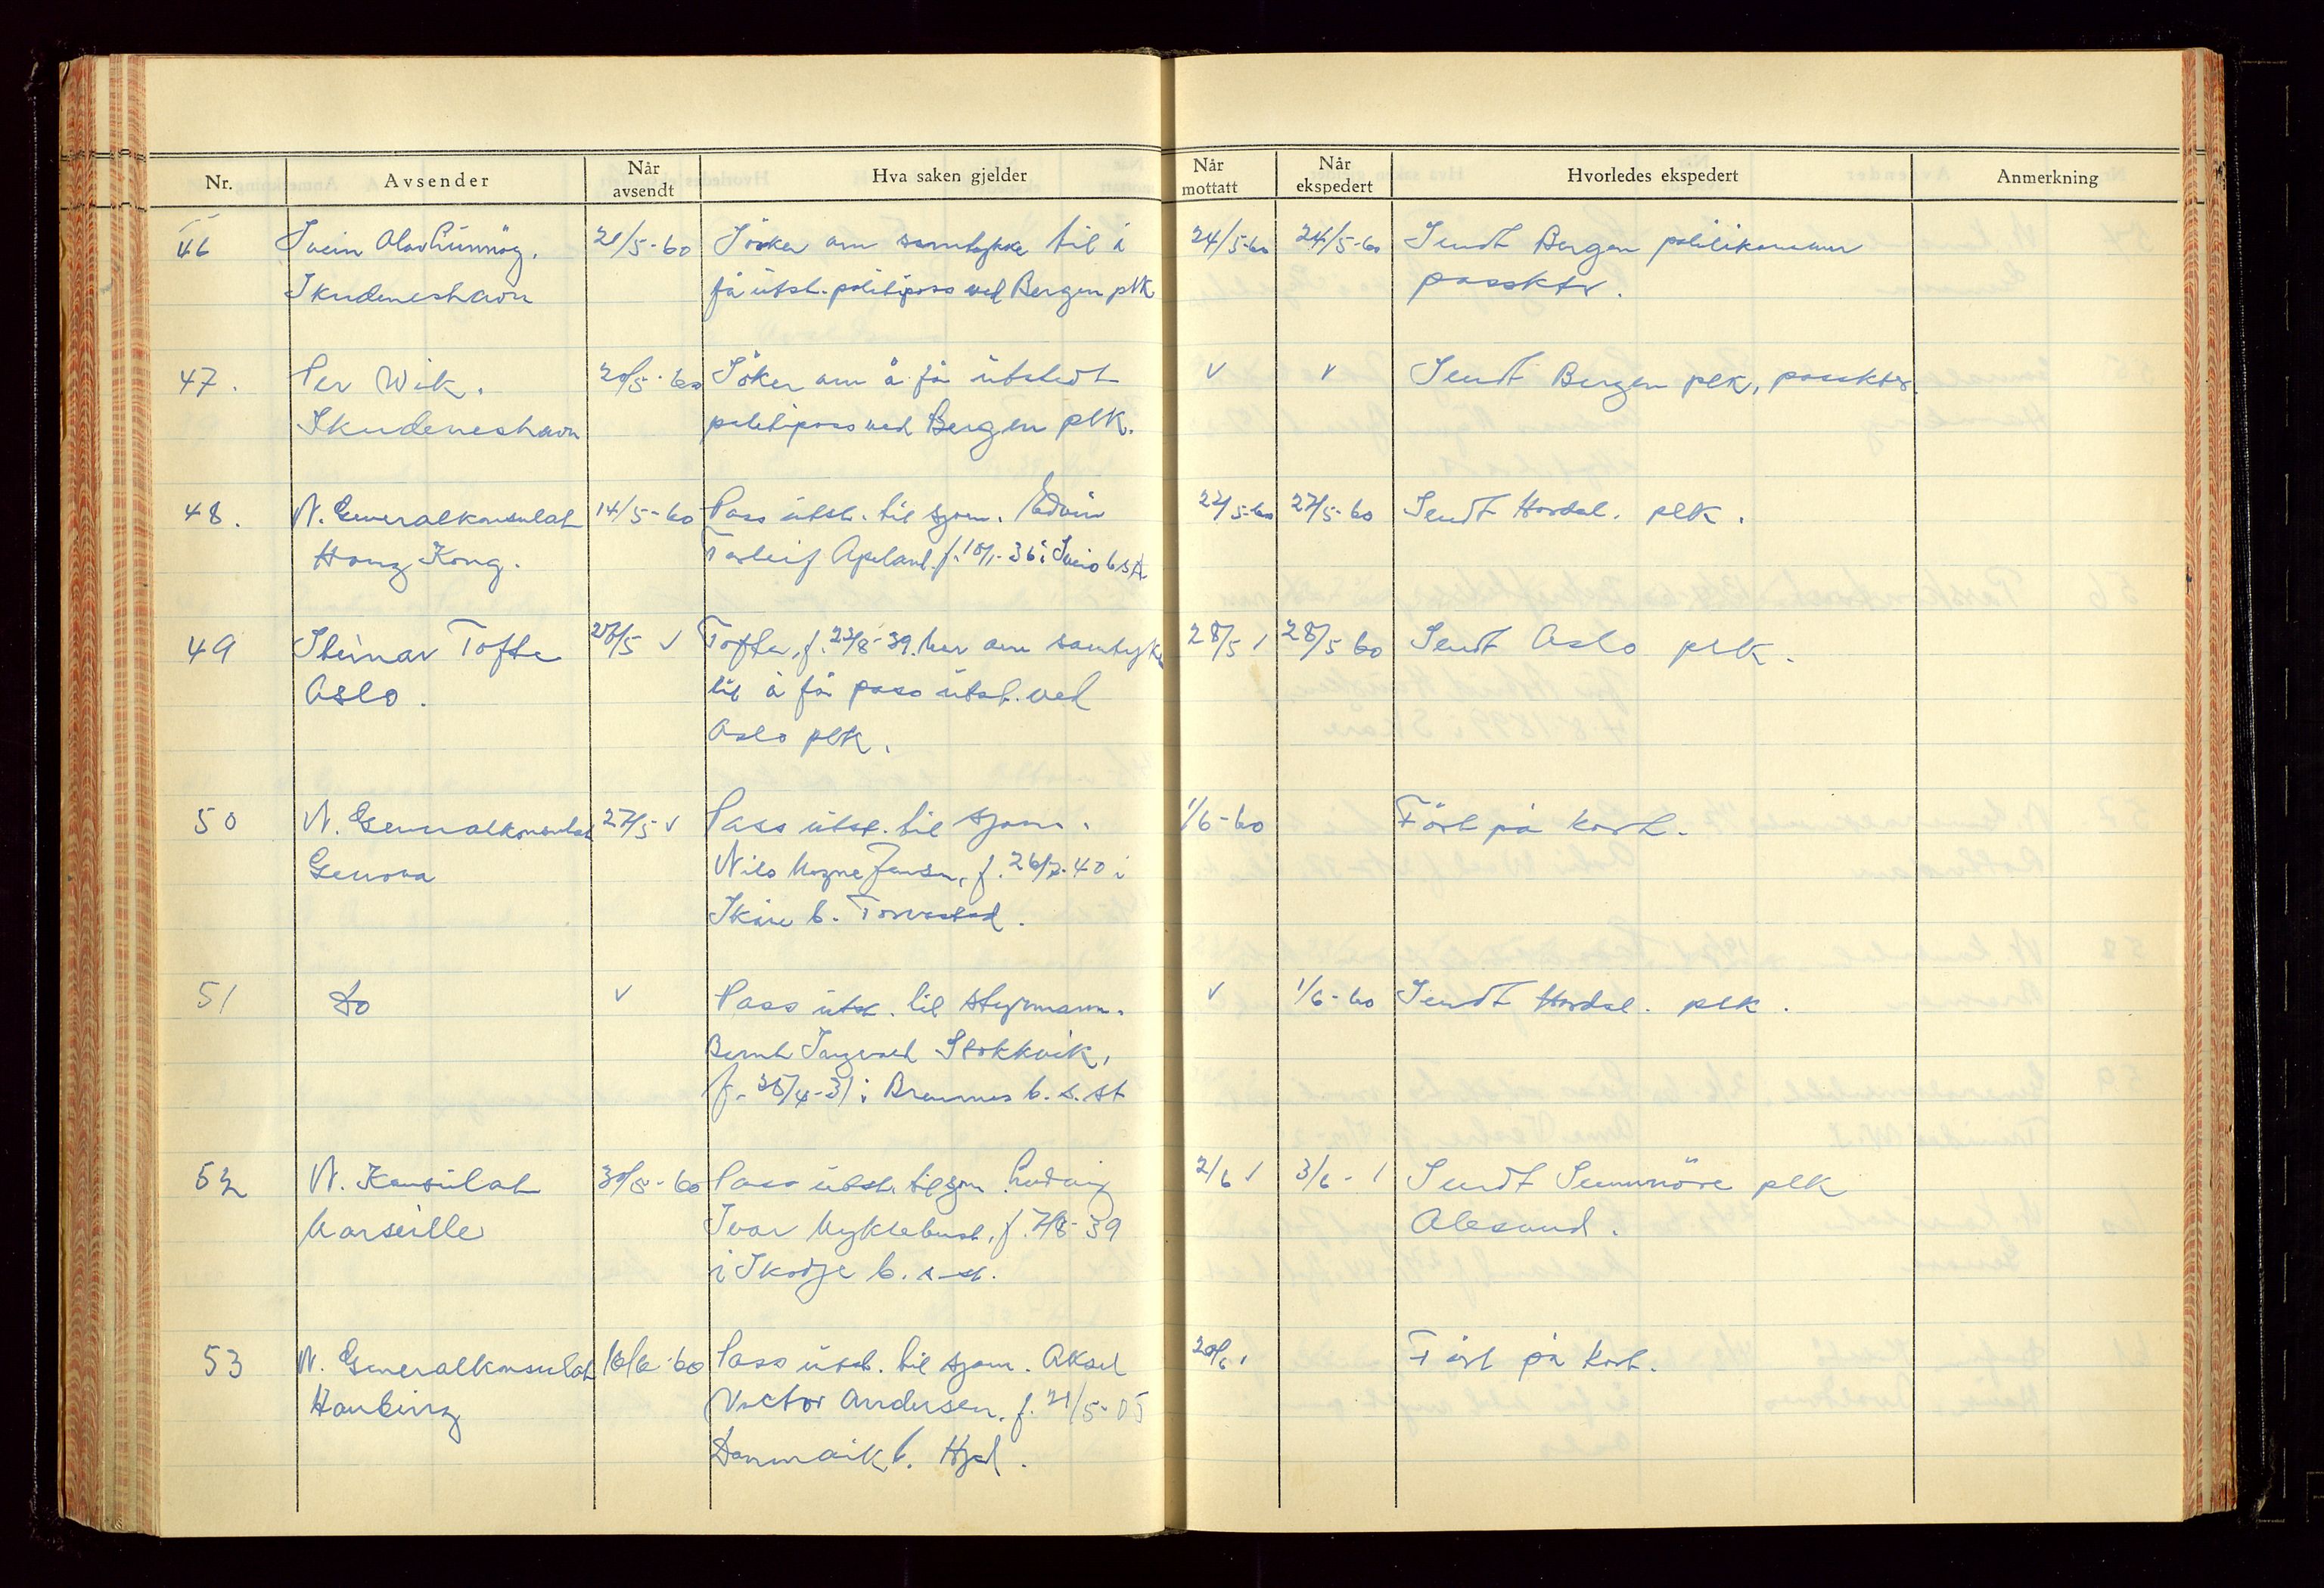 Nr. Avsender Når avsendt Hva saken gjelder Når mottatt Når ekspedert Hvorledes ekspedert Anmerkning
46 Svein Olav 21/5-60 Søker om samtykke til å 24/5-60 24/5-60 Sendt Bergen politikammer
Skudeneshavn få utst. politipass ved Bergen plk passktr.
47. Per Wik. 20/5-60 Søker om å få utstedt v v Sendt Bergen plk, passktr.
Skudeneshavn politipass ved Bergen plk.
48. N. Generalkonsulat 14/5-60 Pass utst. til sjøm. Edvin 27/5-60 27/5-60 Sendt Hordal. plk.
Hong Kong. Torleif Apeland f. 18/1-36 i Sveio b s st
49 Steinar Tofte 28/5 v Tofte, f. 22/8-39. ber om samtykke 28/5 28/5 60 Sendt Oslo plk.
Oslo. til å få pass utst. ved
Oslo plk.
50 N. Generalkonsulat 27/5 v Pass utst. til sjøm. 1/6-60 Ført på kort.
Genova Nils Magne Jensen, f. 26/2-40 i
Skåre b. Torvastad.
51 do v Pass utst. til styrmann. v 1/6-60 Sendt Hordal. plk.
Bernt Ingvald Stokkvik,
f. /4-31 i Bremnes b. s. st
52 N. Konsulat 30/5-60 Pass utst. til sjm Ludvig 2/6 3/6- Sendt Sunnmöre plk
Marseille Ivar Myklebust, f. 7/8-39 Ålesund.
i Skodje b. s. st.
53 N. Generalkonsulat 16/6-60 Pass utst. til sjøm. Aksel 20/6 Ført på kort.
Hamburg Victor Andersen. f. 21/5-05
Danmark b. Hgsd.